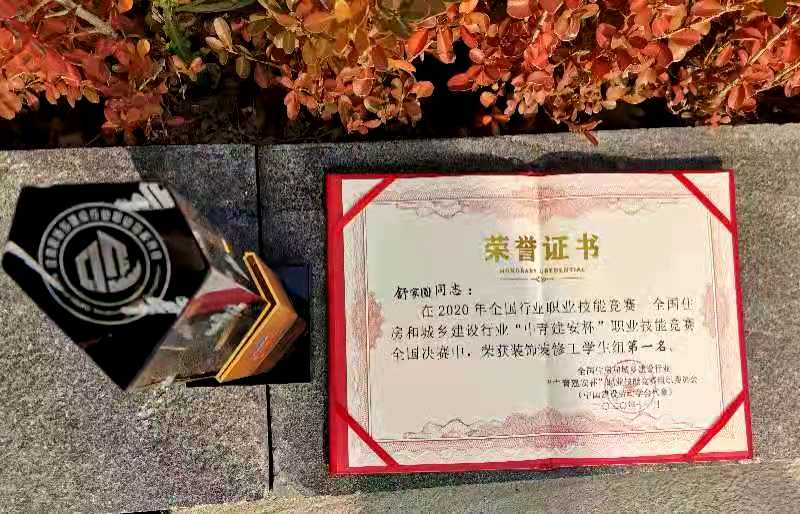 荣誉证书
HONORARY CREDENTIAL
舒家国同志：
在2020年全国行业职业技能竞赛 全国住
房和城乡建设行业“中青建安杯”职业技能竞赛
全国决赛中，荣获装饰装修工学生组第一名。
全国住房和城乡建设行业
“中青建安杯”职业技能竞赛组织委员会
（中国建设劳动学会代章）